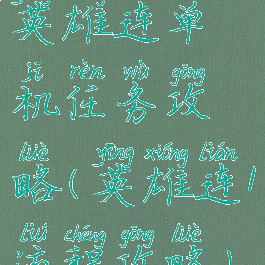 英雄连单
jī rèn wù gōng
机任务攻
lüè yīng xióng lián
略(英雄连1
liú chéng gōng lüè
流程攻略)